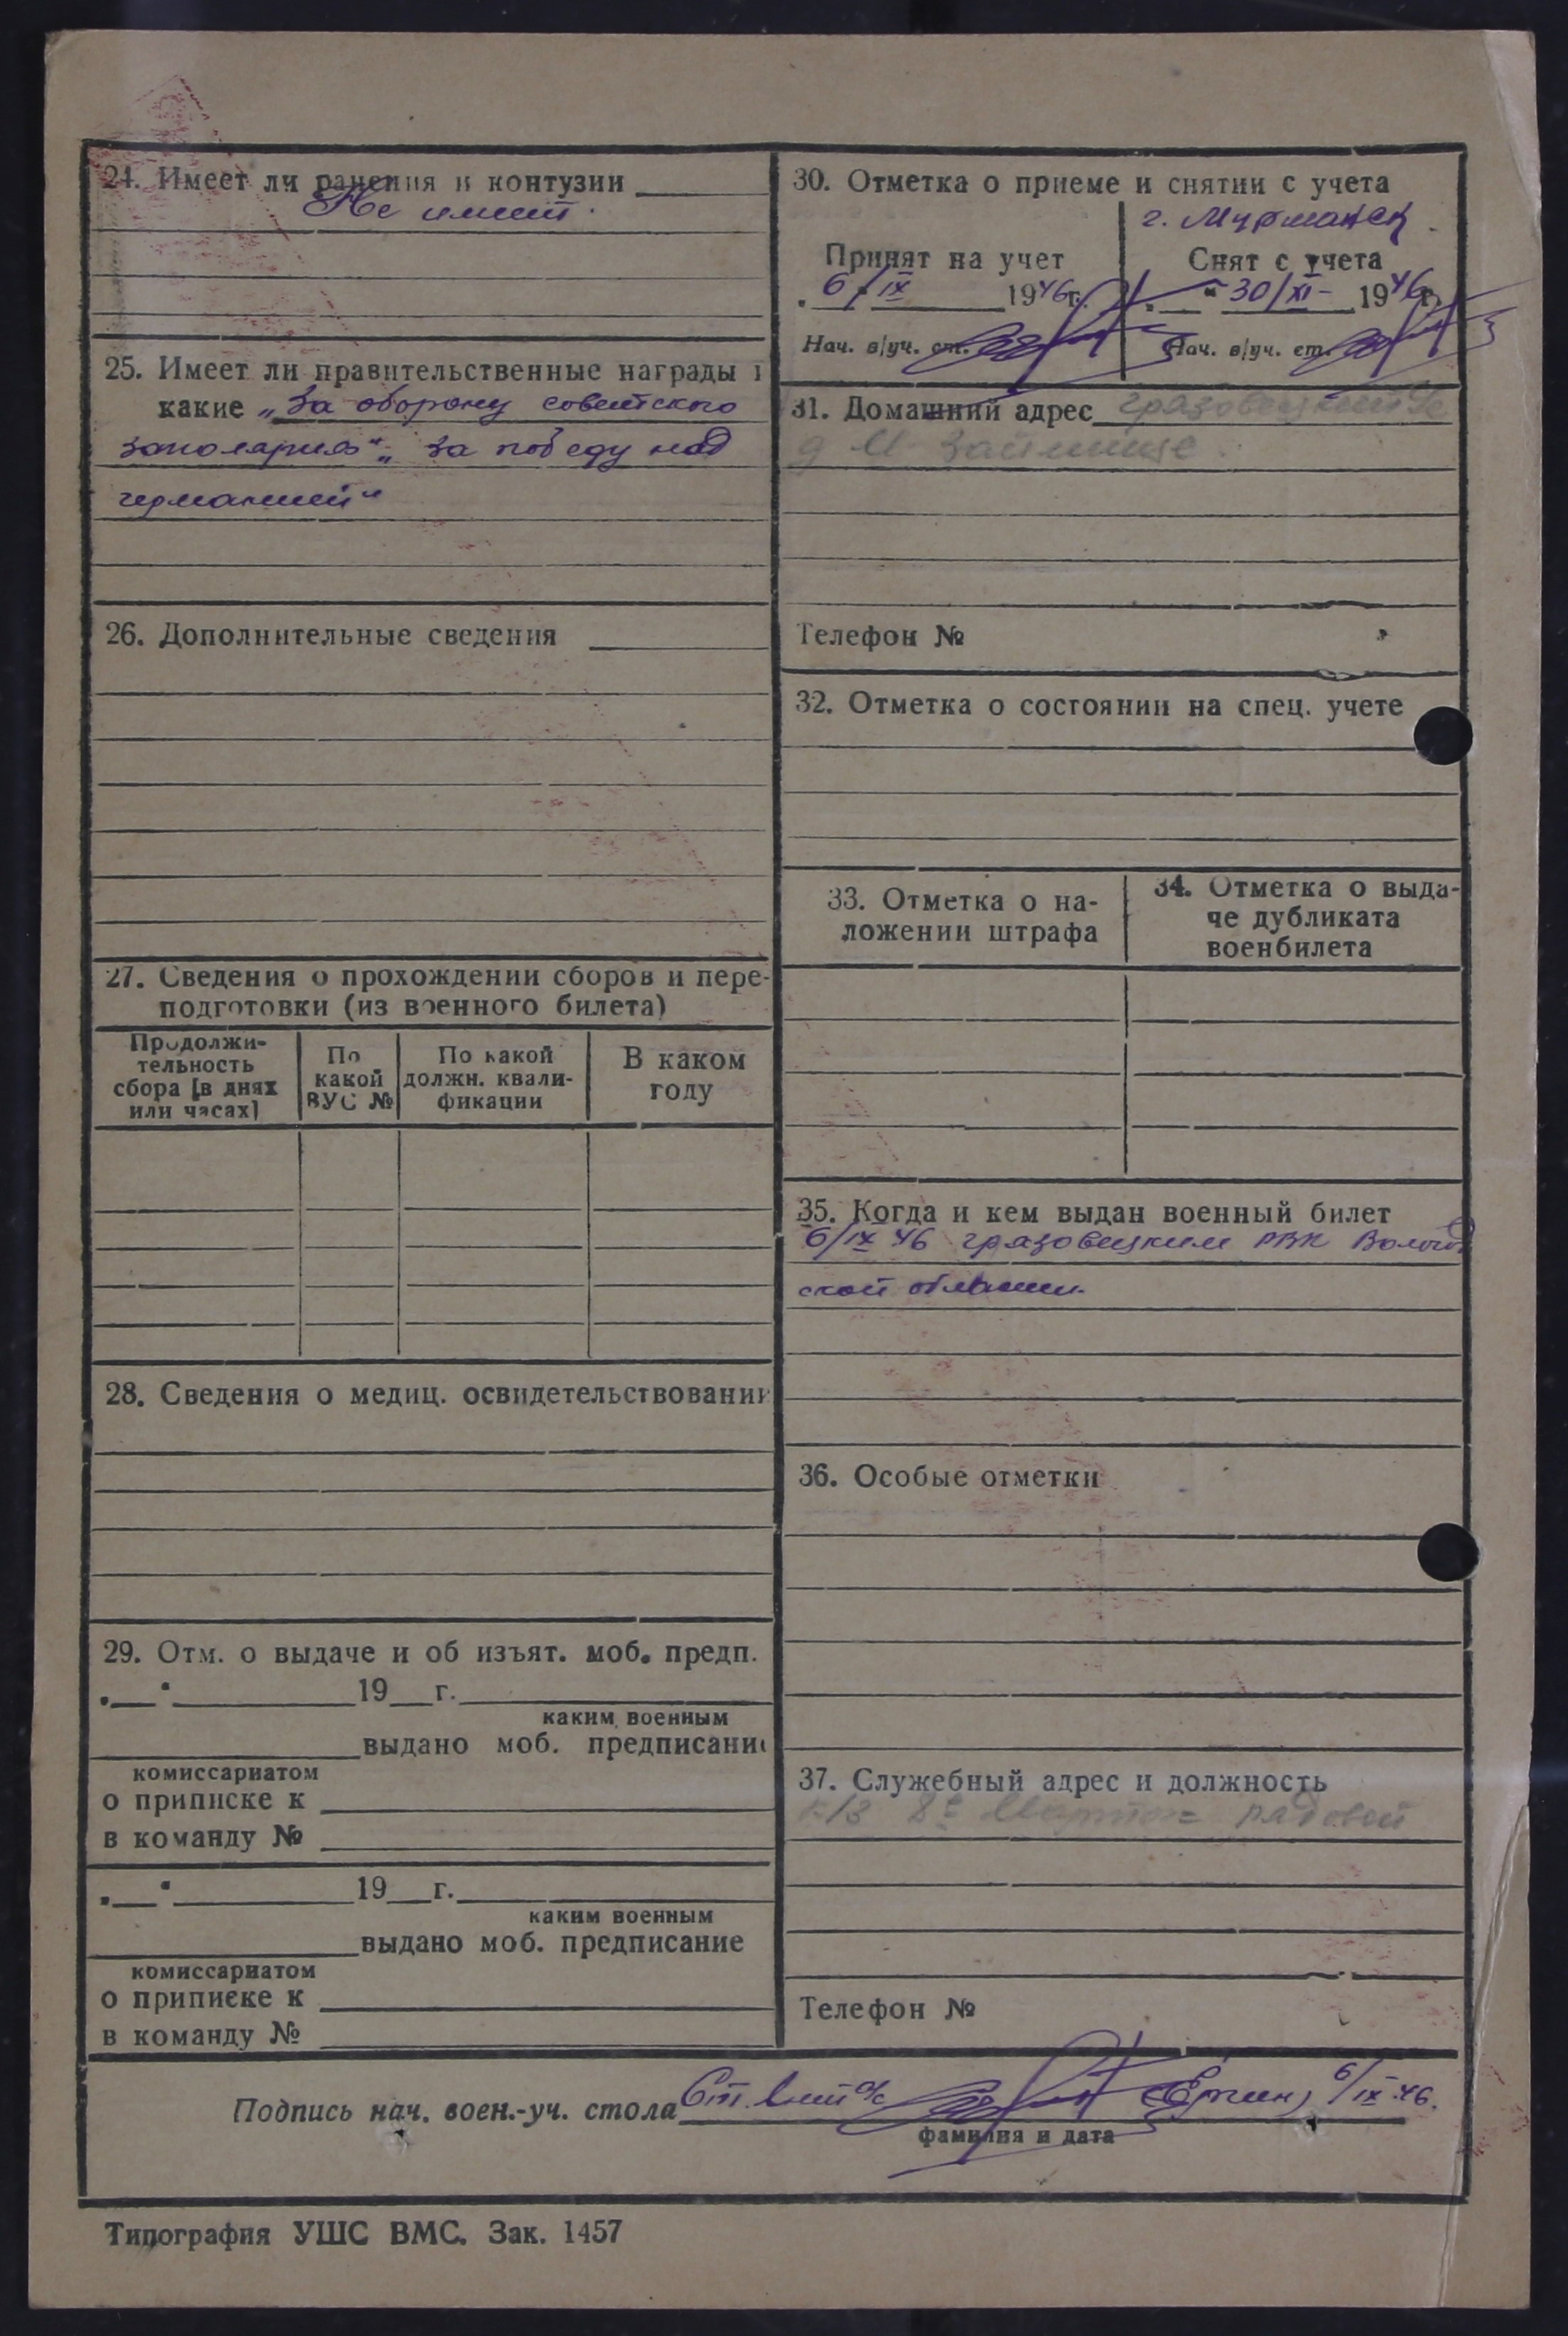 24. Имеет ли ранения и контузии
Не имеет.
25. Имеет ли правительственные награды и
какие „За оборону советского
заполярия“ „За победу над
германией“
26. Дополнительные сведения
27. Сведения о прохождении сборов и пере-
подготовки (из военного билета)
Продолжи-
тельность
сбора [в днях
или часах]
По
какой
ВУС №
По какой
должн. квали-
фикации
В каком
году
28. Сведения о медиц. освидетельствовании
29. Отм. о выдаче и об изъят. моб. предп.
19 г.
каким военным
выдано моб. предписание
комиссариатом
о приписке к
в команду №
19 г.
каким военным
выдано моб. предписание
комиссариатом
о приписке к
в команду №
30. Отметка о приеме и снятии с учета
г. Мурманск
Принят на учет
6/IX 1946г.
Нач. в/уч. ст.
Снят с учета
30/XI- 1946г.
Нач. в/уч. ст.
31. Домашний адрес грязовецкий
д М Займище.
Телефон №
32. Отметка о состоянии на спец. учете
33. Отметка о на-
ложении штрафа
34. Отметка о выда-
че дубликата
военбилета
35. Когда и кем выдан военный билет
6/IX 46 грязовецким РВК Вологод
ской области.
36. Особые отметки
37. Служебный адрес и должность
к/з 8е Марта рядовой
Телефон №
Подпись нач. воен.-уч. стола Ст. 6/IX-46.
фамилия и дата
Типография УШС ВМС. Зак. 1457